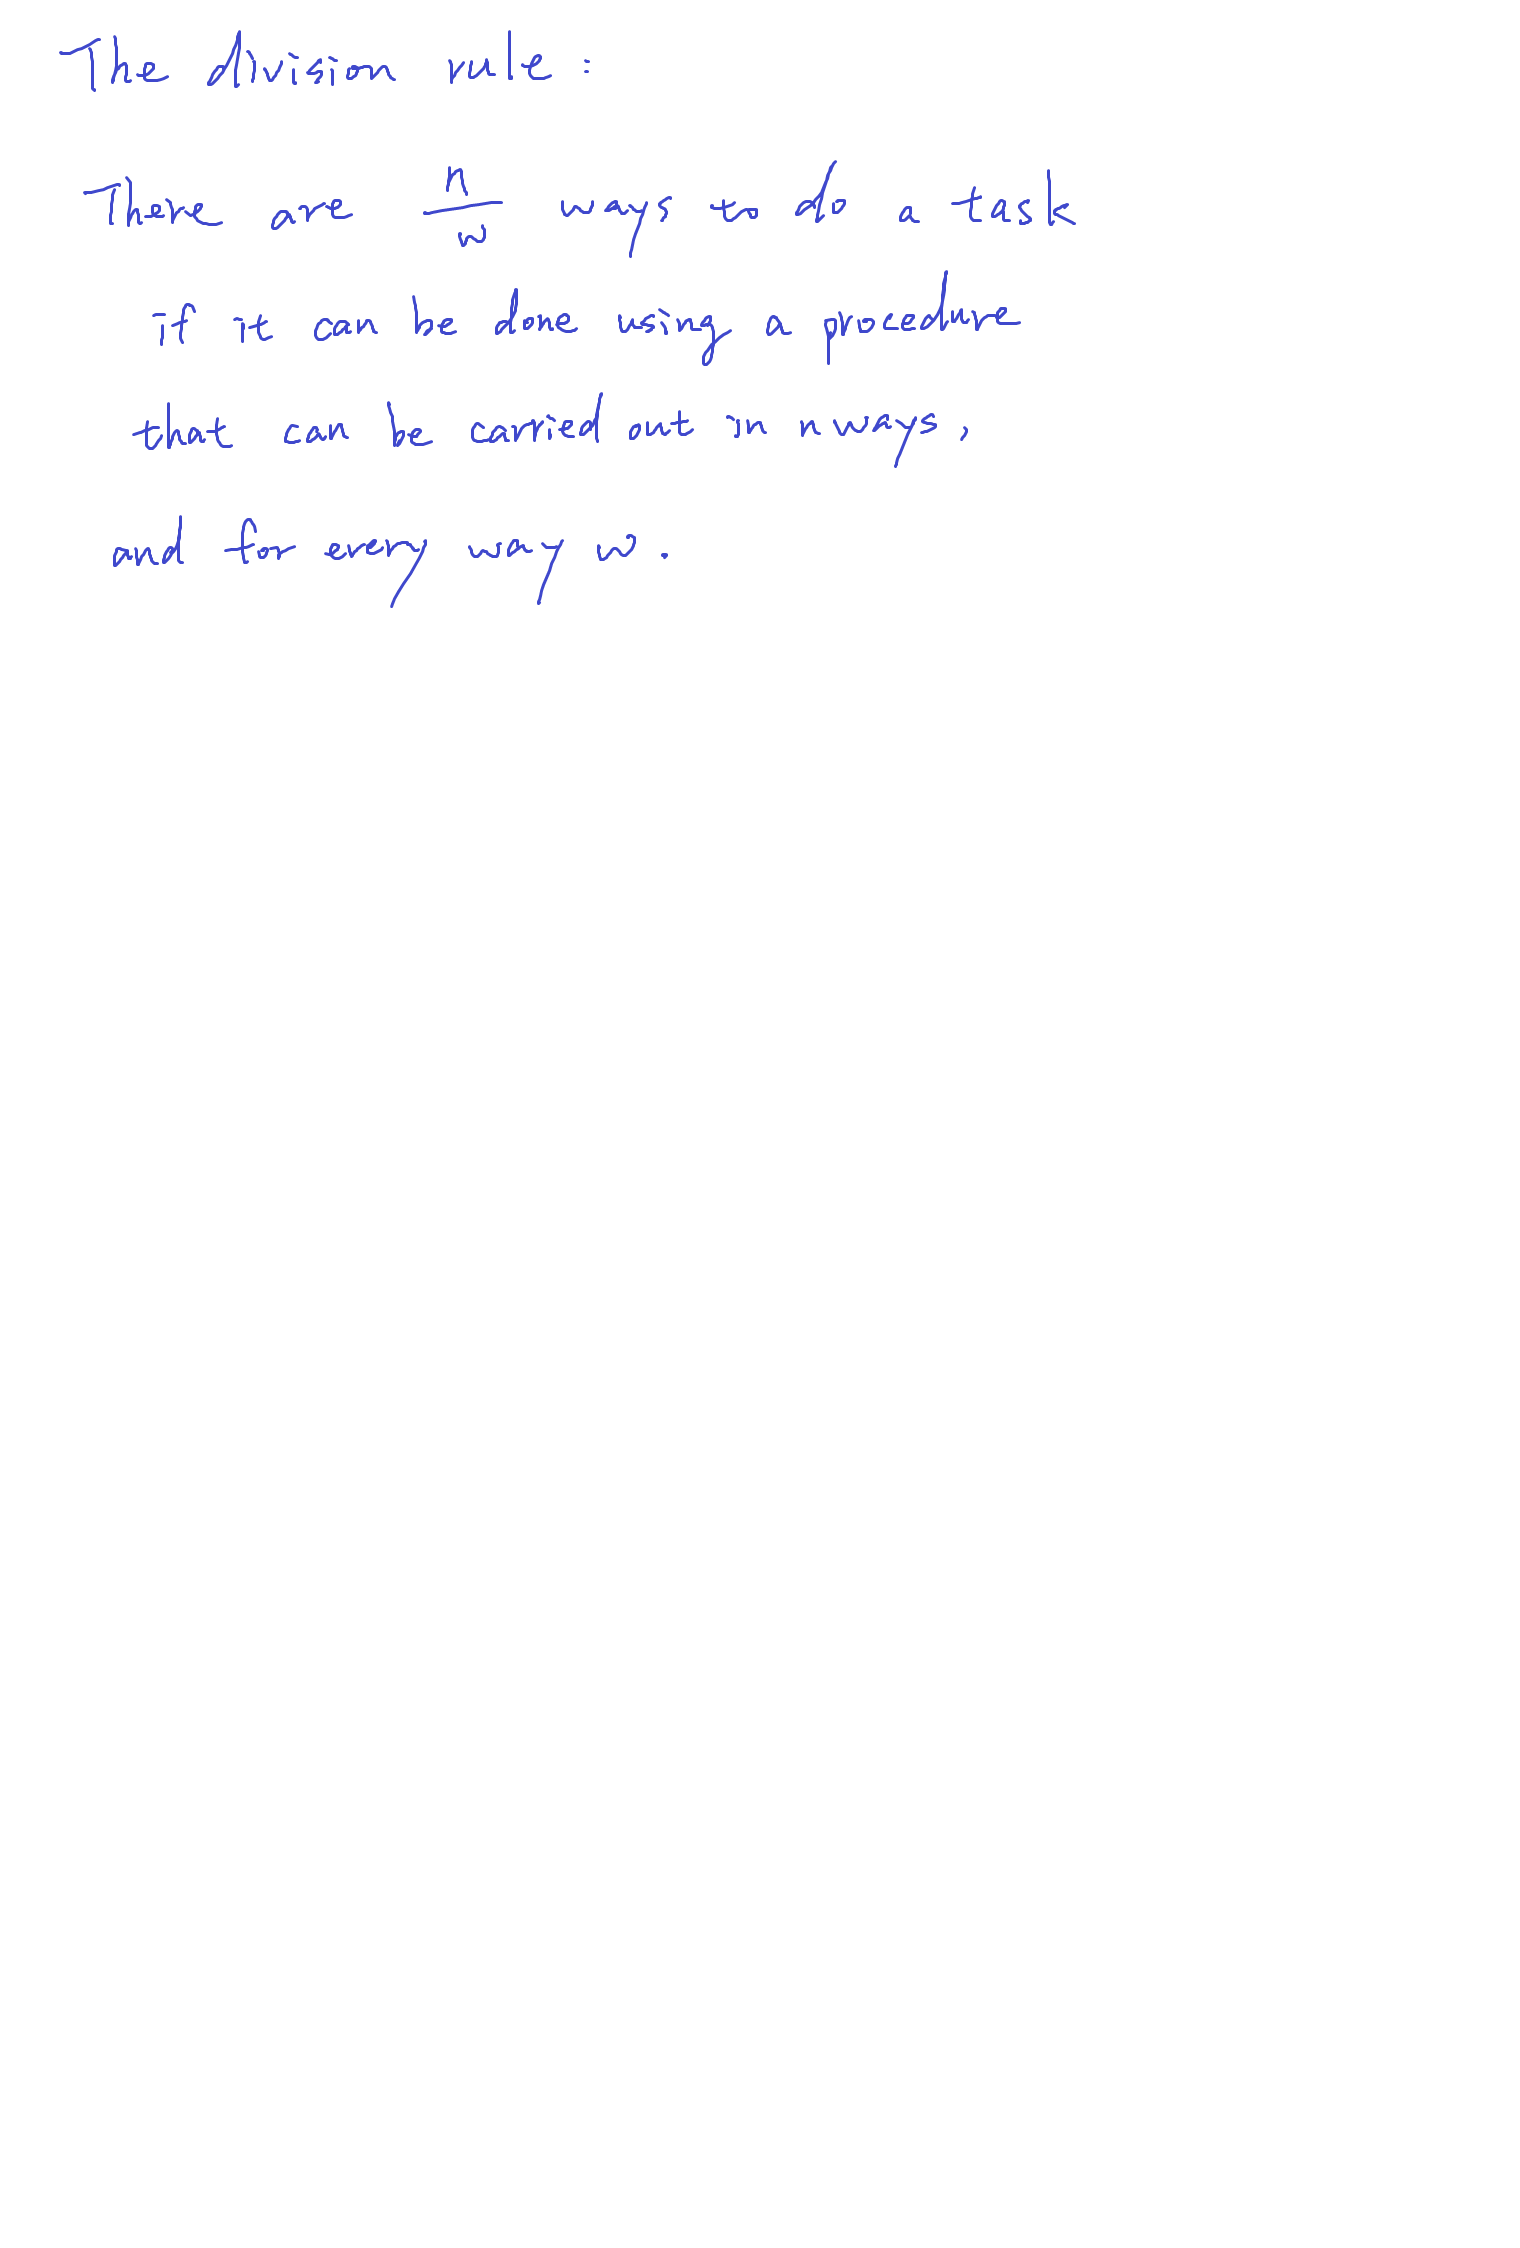 The division rule:
There are n/w ways to do a task
if it can be done using a procedure
that can be carried out in n ways,
and for every way w.